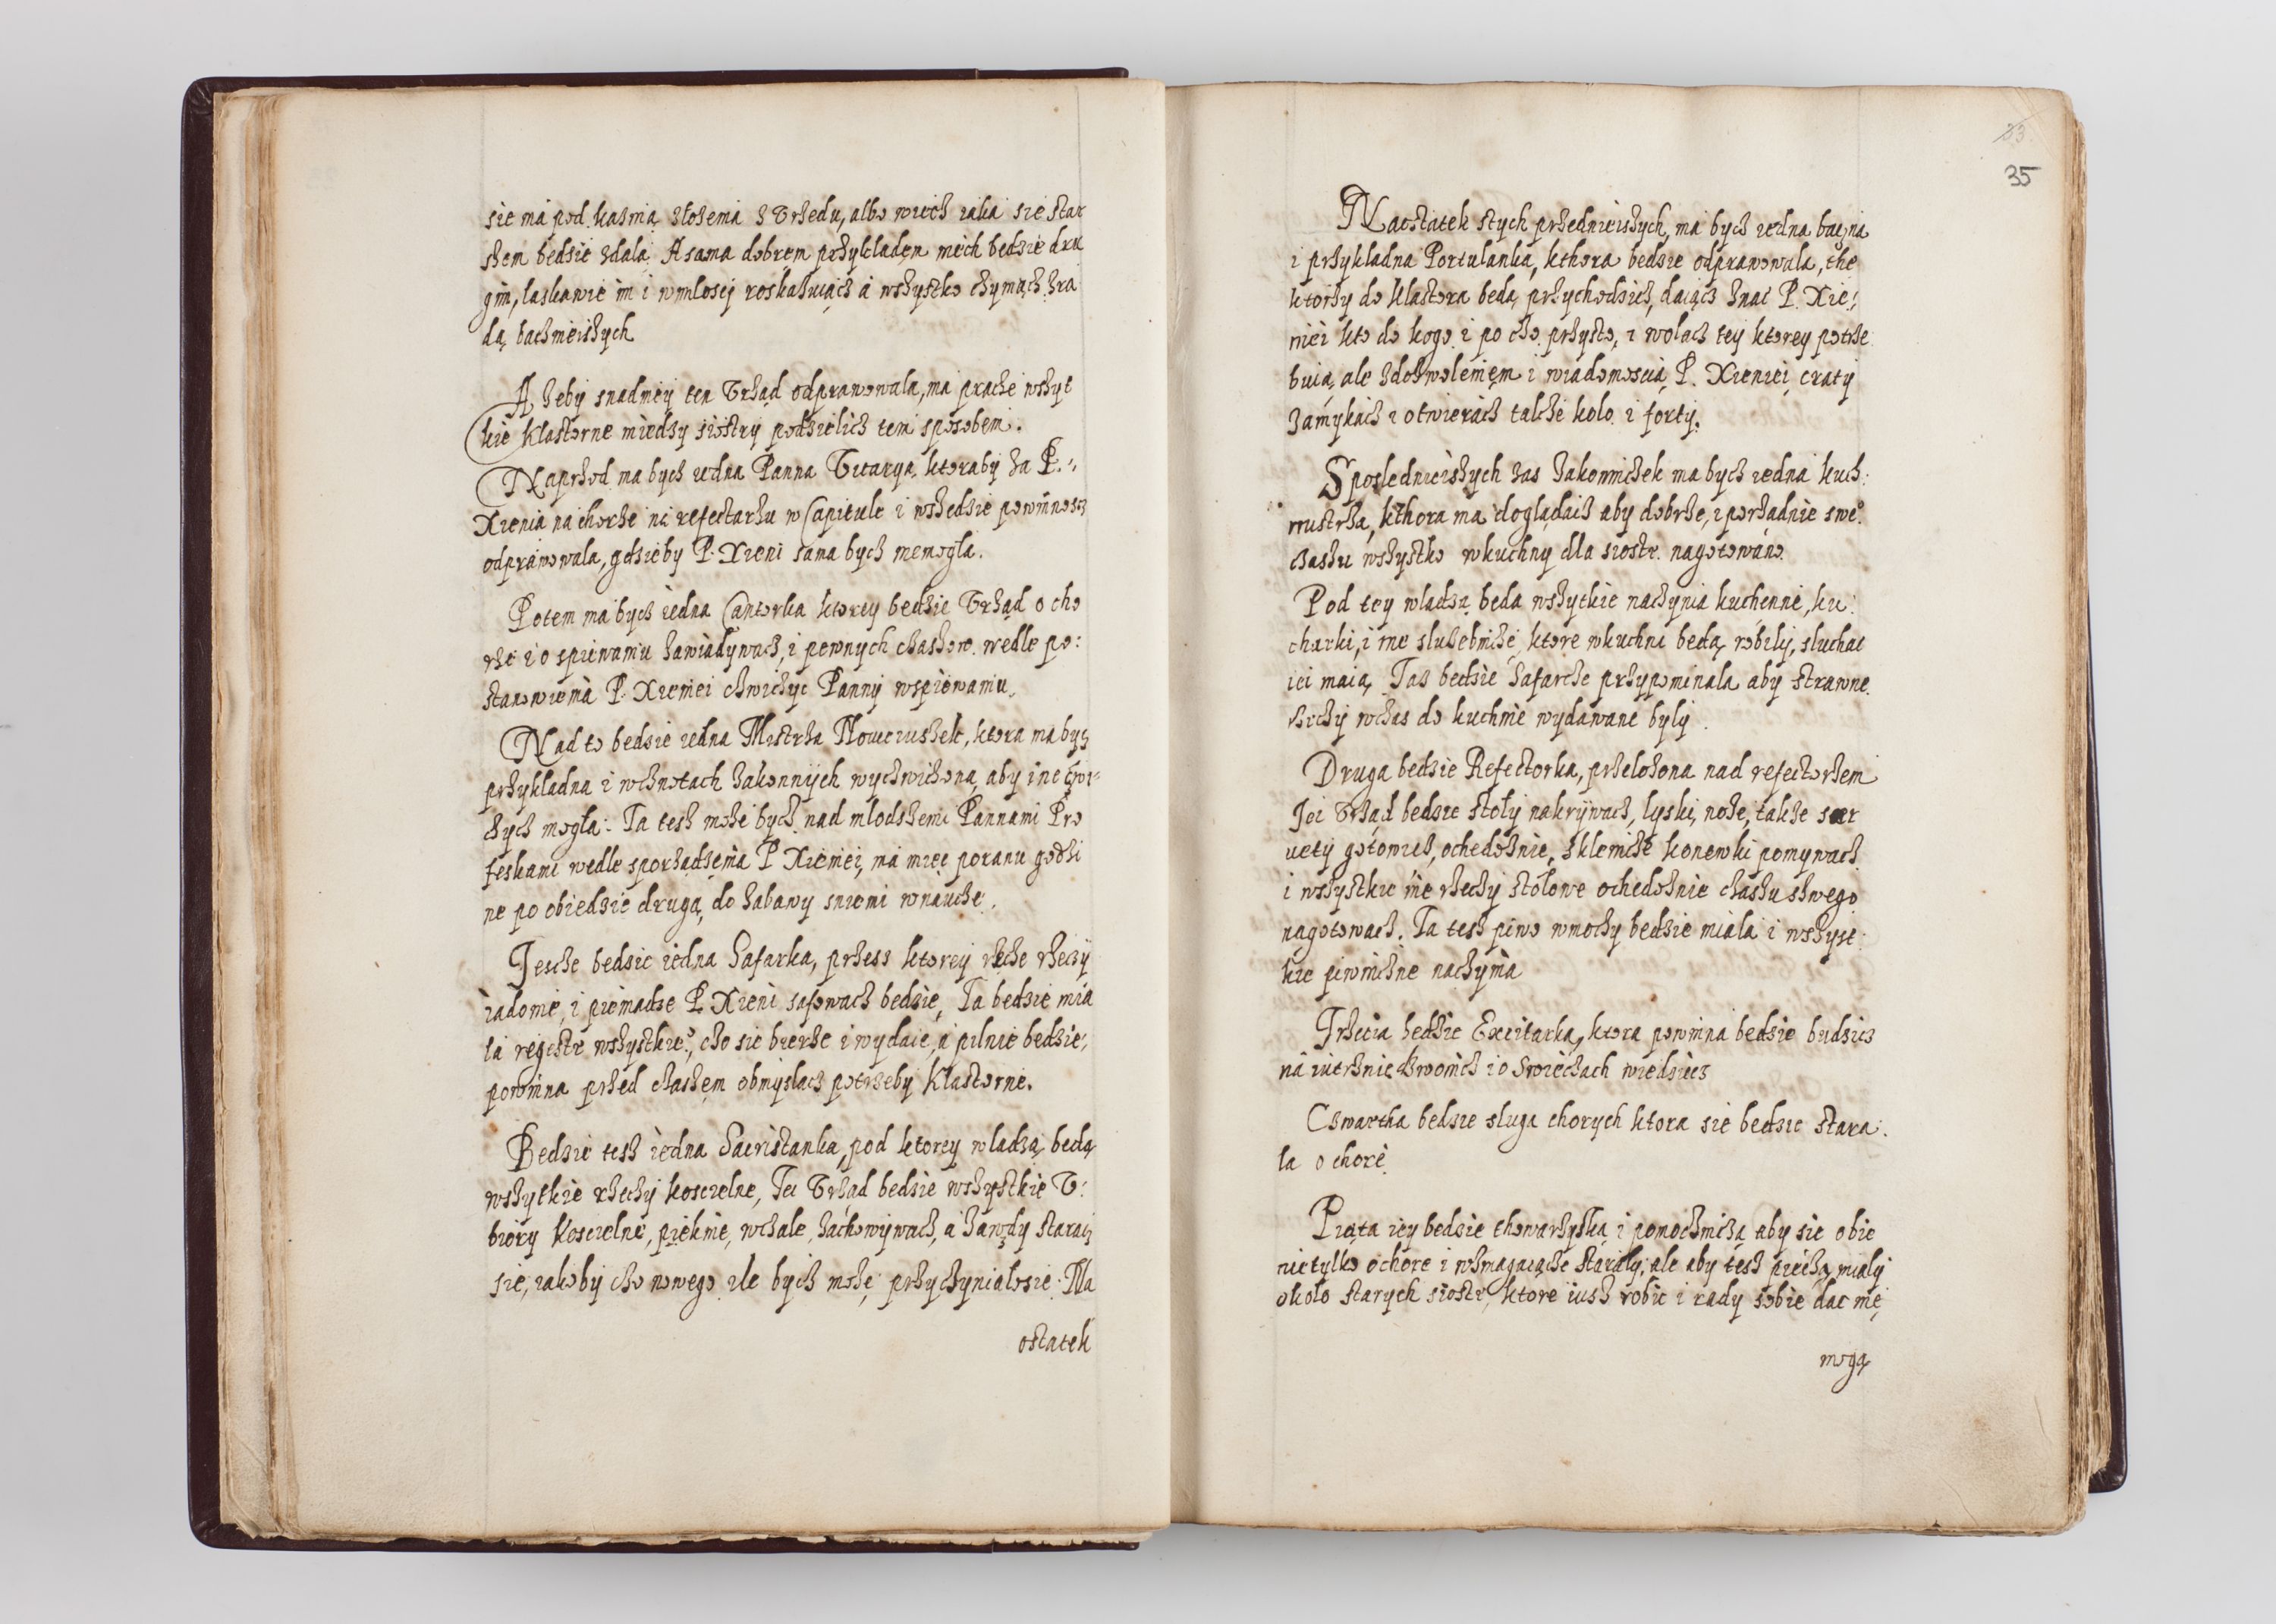 sie má pod kaznią złozenia z Vrzedu, albo wiecz iaka sie star
szem bedzie zdala. A sama dobrem przykladen niech bedzie dru
gim, laskawie im i wmilosci roskazuiącz á wszystko czyniącz z ra
dą bacznieiszych
A zeby snadniey ten Vrząd odprawowala, má prache wszyt
kie klastorne miedzy siostry podzielicz tem sposobem.
Naprzod ma bycz iedna Panna Vicarya, ktoraby za P.
Xienią na chorze ná refectarzu w Capitule i wszedzie powinnoscz
odprawowala, gdzieby P. Xieni sama bycz niemogla.
Potem má bycz iedna Cantorka ktorey bedzie Vrząd o cho
rze i o spiewaniu zawiadywacz, i pewnych czaszow wedle po:
stanowienia P. Xieniei czwiczyc Panny wspiewaniu.
Nad to bedzie iedna Mistrza Nowiciuszek, ktora ma bycz
przykladna i wcznotach zakonnych wyczwiczona, aby ine czwi
czycz mogla: Ta tesz moze bycz nad mlodszemi Pannami Pro
feskami wedle sporządzenia P Xieniei, má miec poranu godzi
ne po obiedzie drugą, do zabawy sniemi wnaucze.
Jescze bedzie iedna Safarka, przess ktorey recze rzeczy
iadome, i pieniadze P. Xieni safowacz bedzie, Ta bedzie mia
la regestr wszystkie°, czo sie bierze i wydaie, á pilnie bedzie
powinna przed czaszem obmyslacz potrzeby klastorne.
Bedzie tesz iedna Sacristanka, pod ktorey wladzą, bedą
wszytkie rzeczy koscielne, Jei Vrząd bedzie wszystkie V:
biory koscielne, pieknie, wczale, zachowywacz, á zawzdy staracz
sie, iakoby czo nowego ile bycz moze, przyczynialosie. Na
ostatek
33.
35
Naostatek stych przednieiszych, má bycz iedna baczna
i przykladna Portulanka, kthora bedzie odprawowala, the
ktorzy do klastora bedą przychodzicz, daiącz znac P. Xie:
niei kto do kogo i po czo przyszo, i wolacz tey ktorey potrze
buią, ale zdozwoleniem i wiádomoscią P. Xieniei craty
zamykacz i otwieracz takze kolo i forty.
Sposlednieiszych zas zakonniczek ma bycz iedna kuch:
mistrza, kthora ma dogladacz aby dobrze, i porządnie swe°
czaszu wszystko wkuchny dla siostr nagotowáno
Pod tey wladzą beda wszytkie naczynia kuchenne, ku:
charki, i ine sluzebnicze, ktore wkuchni bedą robily, sluchac
iei maią, Taz bedzie Safarcze przypominala aby strawne
rzeczy wczas do kuchnie wydawane byly.
Druga bedzie Refectorka, przelozona nad refectorzem
Jei Vrząd bedzie stoly nakrywacz, lyski, noze, takze ser
uety gotowicz, ochedoznie, sklenicze konewki pomywacz
i wszystkie ine rzeczy stolowe ochedoznie czaszu szwego
nagotowacz. Ta tesz piwo wmoczy bedzie miala i wszyst:
kie piwniczne naczynia
Trzecia bedzie Excitarka, ktora powinna bedzie budzicz
ná iutrznie dzwonicz i o swieczach wiedziecz
Czwartha bedzie sluga chorych ktora sie bedzie stara:
la o chore
Piąta iey bedzie thowarzyszka i pomocznicza aby sie obie
nietylko o chore i wzmagaiącze staraly, ale aby tesz piecza mialy
okolo starych siostr, ktore iusz robic i rady sobie dac nie
mogą